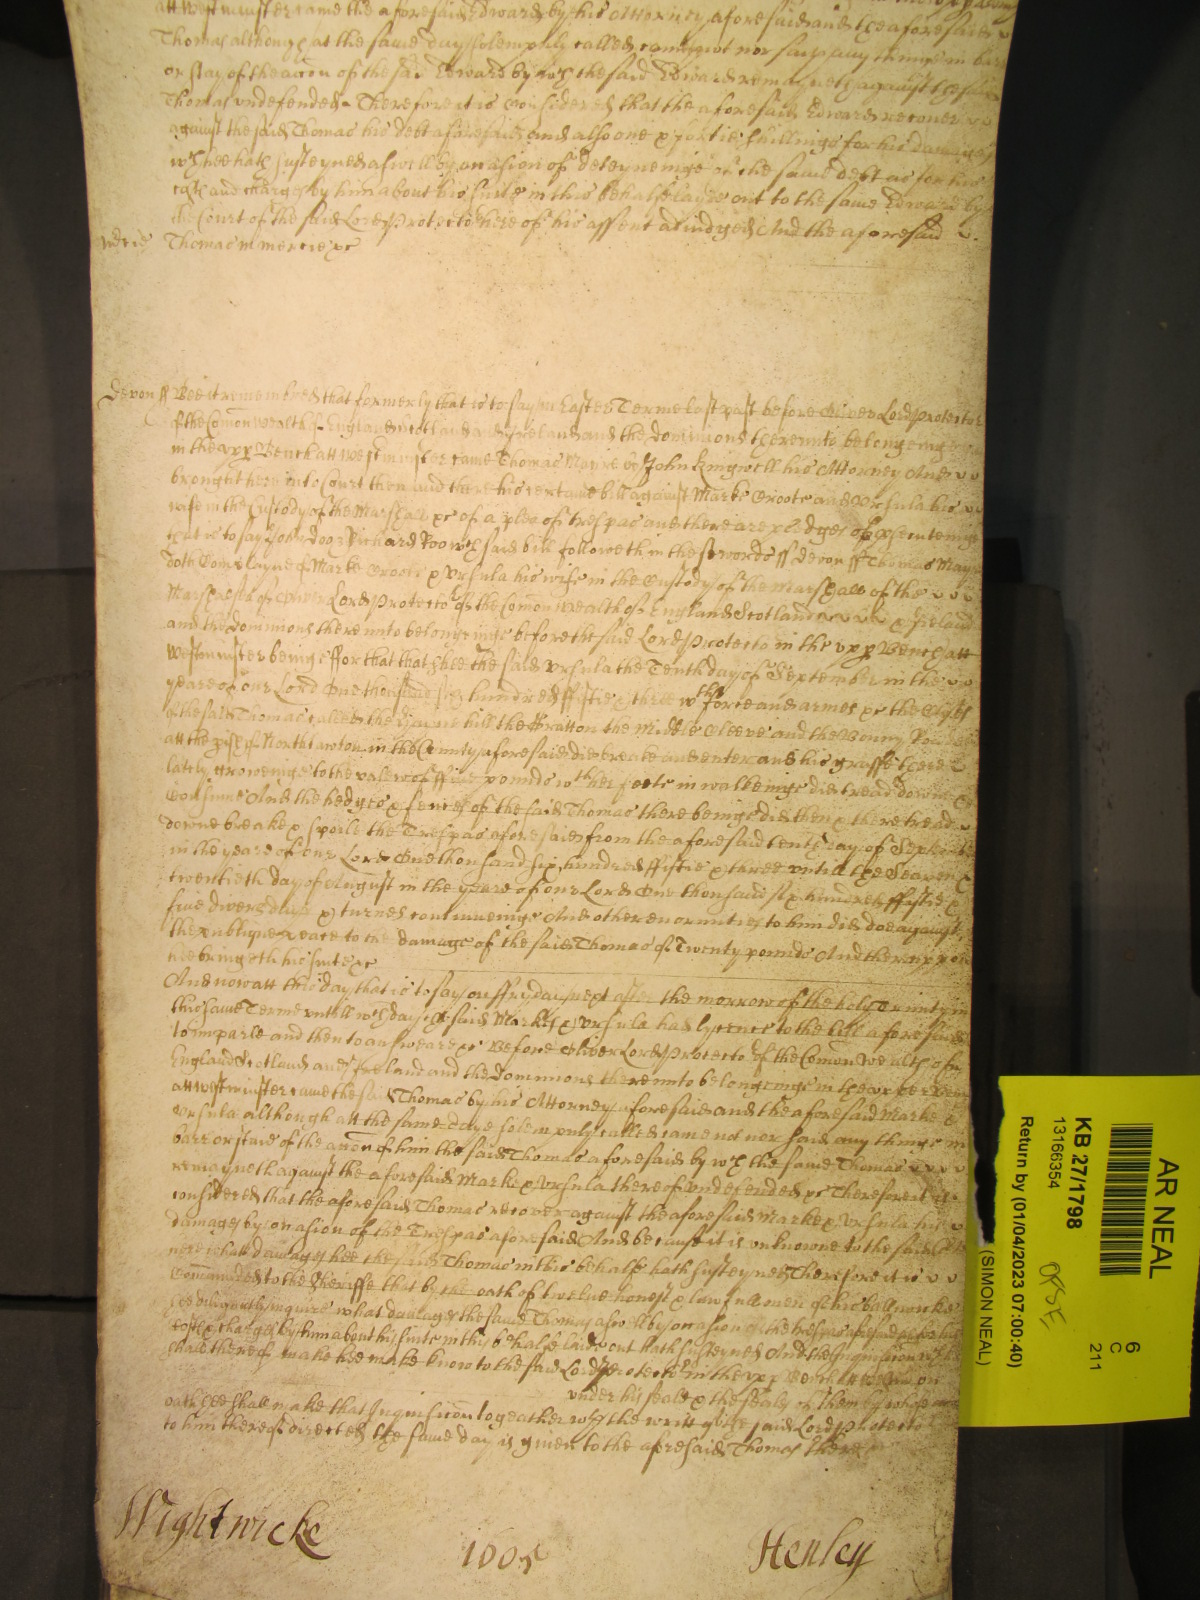 att Westminster came the aforesaid Edward by his Attorney aforesaid and the aforesaid
Thomas although att the same day solempnly called came not nor said any thinge in barr
or stay of the accon of the said Edward by wch the said Edward remayneth against the said
Thomas undefended Therefore it is Considered that the aforesaid Edward recover
against the said Thomas his debt aforesaid and also one & fortie shillings for his damages
wch hee hath susteyned aswell by occasion of deteyneinge of the same debt as for his
costs and charges by him about his suite in this behalfe layde out to the same Edward by
the Court of the said Lord Protector here of his assent adiudged And the aforesaid
Thomas in mercie &c
Devon ss Bee it remembred that formerly that is to say in Easter Terme last past before Oliver Lord Protector
of the Comon Wealth of England Scotland and Ireland and the Dominions thereunto belongeinge
in the upp Bench att Westminster came Thomas Mayne by John Kingwell his Attorney And
brought here into Court then and there his certane bill against Marke Croote and Ursula his
wife in the Custody of the Marshall &c of a plea of trespas and there are pledges of prosecuteinge
that is to say John Doo & Richard Roo wch said bill followeth in these words ss Devon ss Thomas Mayne
doth Complayne of Marke Croote & Ursula his wife in the Custody of the Marshall of the
Marshalsea of Oliver Lord Protector of the Comon Wealth of England Scotland & Ireland
and the Dominions thereunto belongeinge before the said Lord Protector in the upp Bench att
Westminster beinge ffor that that shee the said Ursula the Tenth day of September in the
yeare of our Lord One thousand six hundred ffiftie & three wth force and armes &c the Closes
of the said Thomas called the hill the Gratton the Middle Cleeve and the Bonny
att the pish of North tawton in the County aforesaid did breake and enter and his grasse there
lately groweinge to the valew of ffive pounds wth her feete in walkeinge did tread downe &
Consume And the hedges & fences of the said Thomas there beinge did then & there tread
downe breake & spoile the Trespas aforesaid from the aforesaid tenth day of September
in the yeare of our Lord One thousand six hundred ffiftie & three untill the Seaven &
twentieth day of August in the yeare of our Lord One thousand six hundred ffiftie &
five divers dayes & turnes continueinge And other enormities to him did doe against
the publique peace to the damage of the said Thomas of Twenty pounds And thereuppon
hee bringeth his suite &c
And now att this day that is to say on ffryday next after the morrow of the holy Trinity in
this same Terme untill wch day the said Marke & Ursula had lycence to the bill aforesaid
to imparle and then to answeare &c Before Oliver Lord Protector of the Comon Wealth of
England Scotland and Ireland and the Dominions thereunto belongeinge in the upper Bench
att Westminster came the said Thomas by his Attorney aforesaid and the aforesaid Marke &
Ursula although att the same daye solempnly called came not nor said any thinge in
barr or staie of the accon of him the said Thomas aforesaid by wch the same Thomas
remayneth against the aforesaid Marke & Ursula thereof undefended &c Therefore it is
considered that the aforesaid Thomas recover against the aforesaid Marke & Ursula his
damages by occasion of the Trespas aforesaid And because it is unknowne to the said Court
here what damages hee the said Thomas in this behalfe hath susteyned Therefore it is
Commanded to the Sheriffe that by the oath of twelve honest & lawfull men of his ballywicke
hee diligently inquire what damages the same Thomas aswell by occasion of the trespas aforesaid as for his
costs & charges by him about his suite in this behalfe laid out hath susteyned And the Inquisicion wch hee
shall thereof make hee make know to the said Lord Protector in the upp Bench att Westm on
under his seale & the seales of them by whose
oath hee shall make that Inquisicion togeather wth the writt of the said Lord Protector
to him thereof directed the same day is given to the aforesaid Thomas there
Wightwicke
1605
Henley
AR NEAL
6
C
211
KB 27/1798
13166354
Return by (01/04/2023 07:00:40)
(SIMON NEAL)